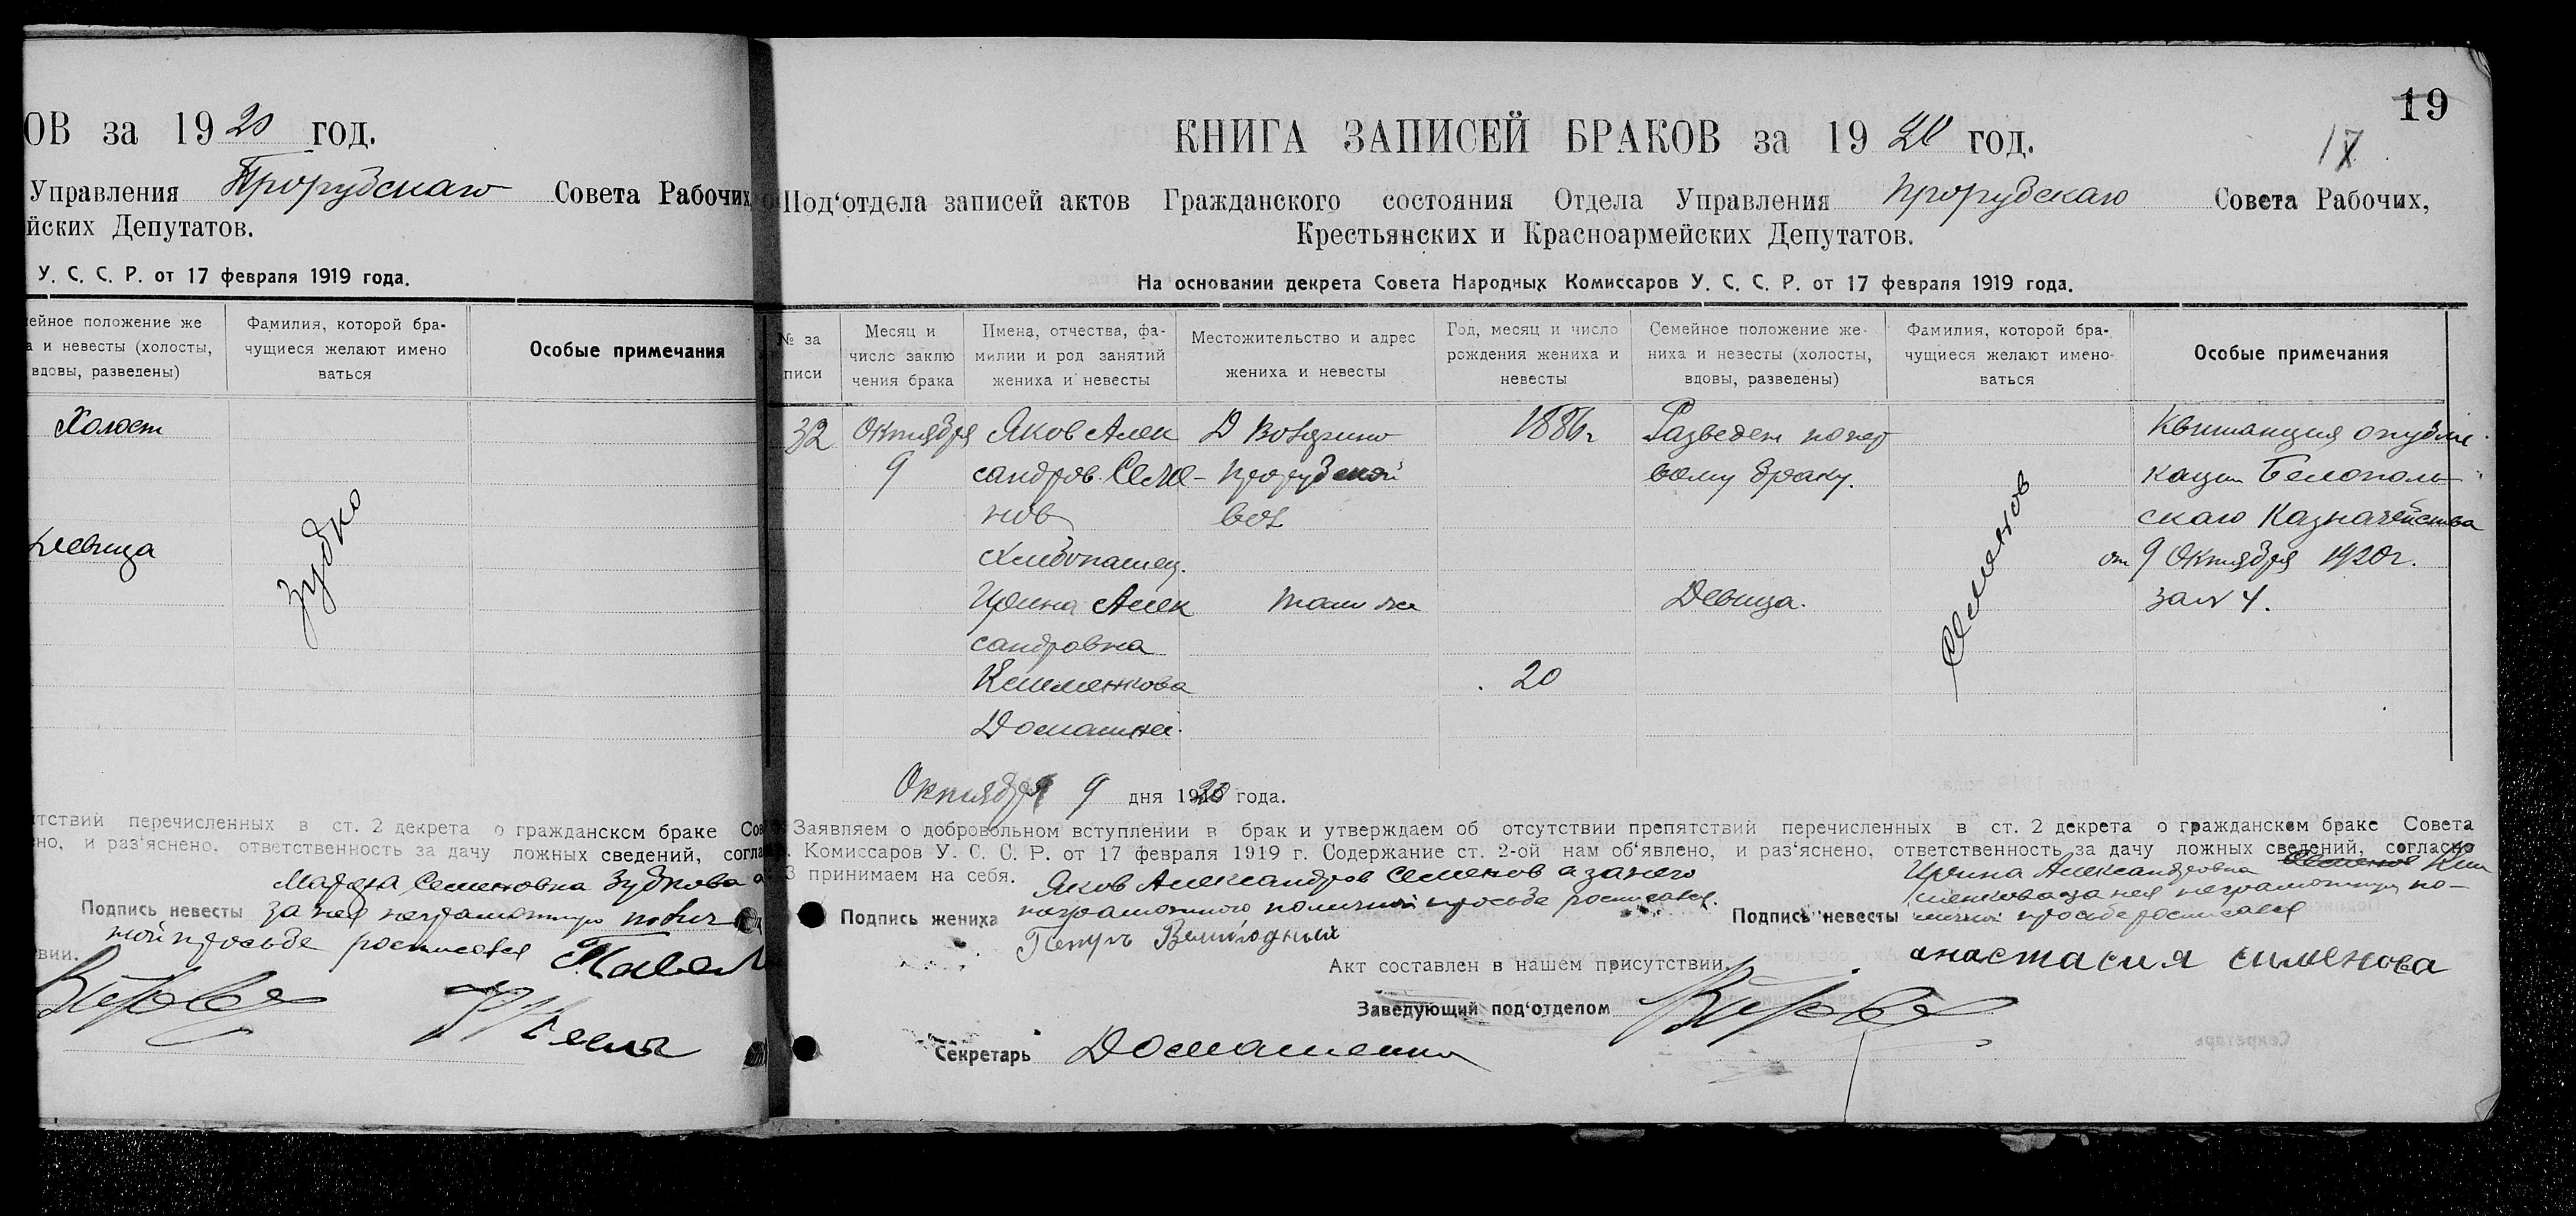 ОВ за 1920 год.
Управления Прорубскаго Совета Рабочих
йских Депутатов.
У. С. С. Р. от 17 февраля 1919 года.
ейное положение же
а и невесты (холосты,
вдовы, разведены)
Фамилия, которой бра-
чущиеся желают имено
ваться
Особые примечания
Холост
Девица
Зубко
тствий перечисленных в ст. 2 декрета о гражданском браке Сов
но, и раз'яснено, ответственность за дачу ложных сведений, согла
Семеновна Зубкова а
Подпись невесты за нея неграмотную по
ной просьбе росписался
вии.
19
17
КНИГА ЗАПИСЕЙ БРАКОВ за 1920 год.
Под'отдела записей актов Гражданского состояния Отдела Управления Прорубскаго Совета Рабочих,
Крестьянских и Красноармейских Депутатов.
На основании декрета Совета Народных Комиссаров У. С. С. Р. от 17 февраля 1919 года.
№ за
писи
Месяц и
число заклю
чения брака
Имена, отчества, фа-
милии и род занятий
жениха и невесты
Местожительство и адрес
жениха и невесты
Год, месяц и число
рождения жениха и
невесты
Семейное положение же-
ниха и невесты (холосты,
вдовы, разведены)
Фамилия, которой бра-
чущиеся желают имено-
ваться
Особые примечания
32
Октября
9
Яков Алек
сандров Семе-
нов
Хлибопашец.
Ирина Алек
сандровна
Клименкова
Домашнее.
Д
Прорубской
вол
там же
1886 г
20
Разведен по пер
вому браку.
Девица.
Семенов
Квитанция о публи
кации Белополь
скаго Казначейства
от 9 Октября 1920 г.
за № 4.
Октября 9 дня 1920 года.
Заявляем о добровольном вступлении в брак и утверждаем об отсутствии препятствий перечисленных в ст. 2 декрета о гражданском браке Совета
. Комиссаров У. С. С. Р. от 17 февраля 1919 г. Содержание ст. 2-ой нам об'явлено, и раз'яснено, ответственность за дачу ложных сведений, согласно
3 принимаем на себя.
Яков Александров Семенов а за него
Подпись жениха неграмотного по личной просьбе росписался.
Петръ
Ирина Александровна Семенов Кли
менкова а за нея неграмотную по-
Подпись невесты личной просьбе росписался
анастасия сименова
Акт составлен в нашем присутствии
Заведующий под'отделом
Секретарь Домашенко